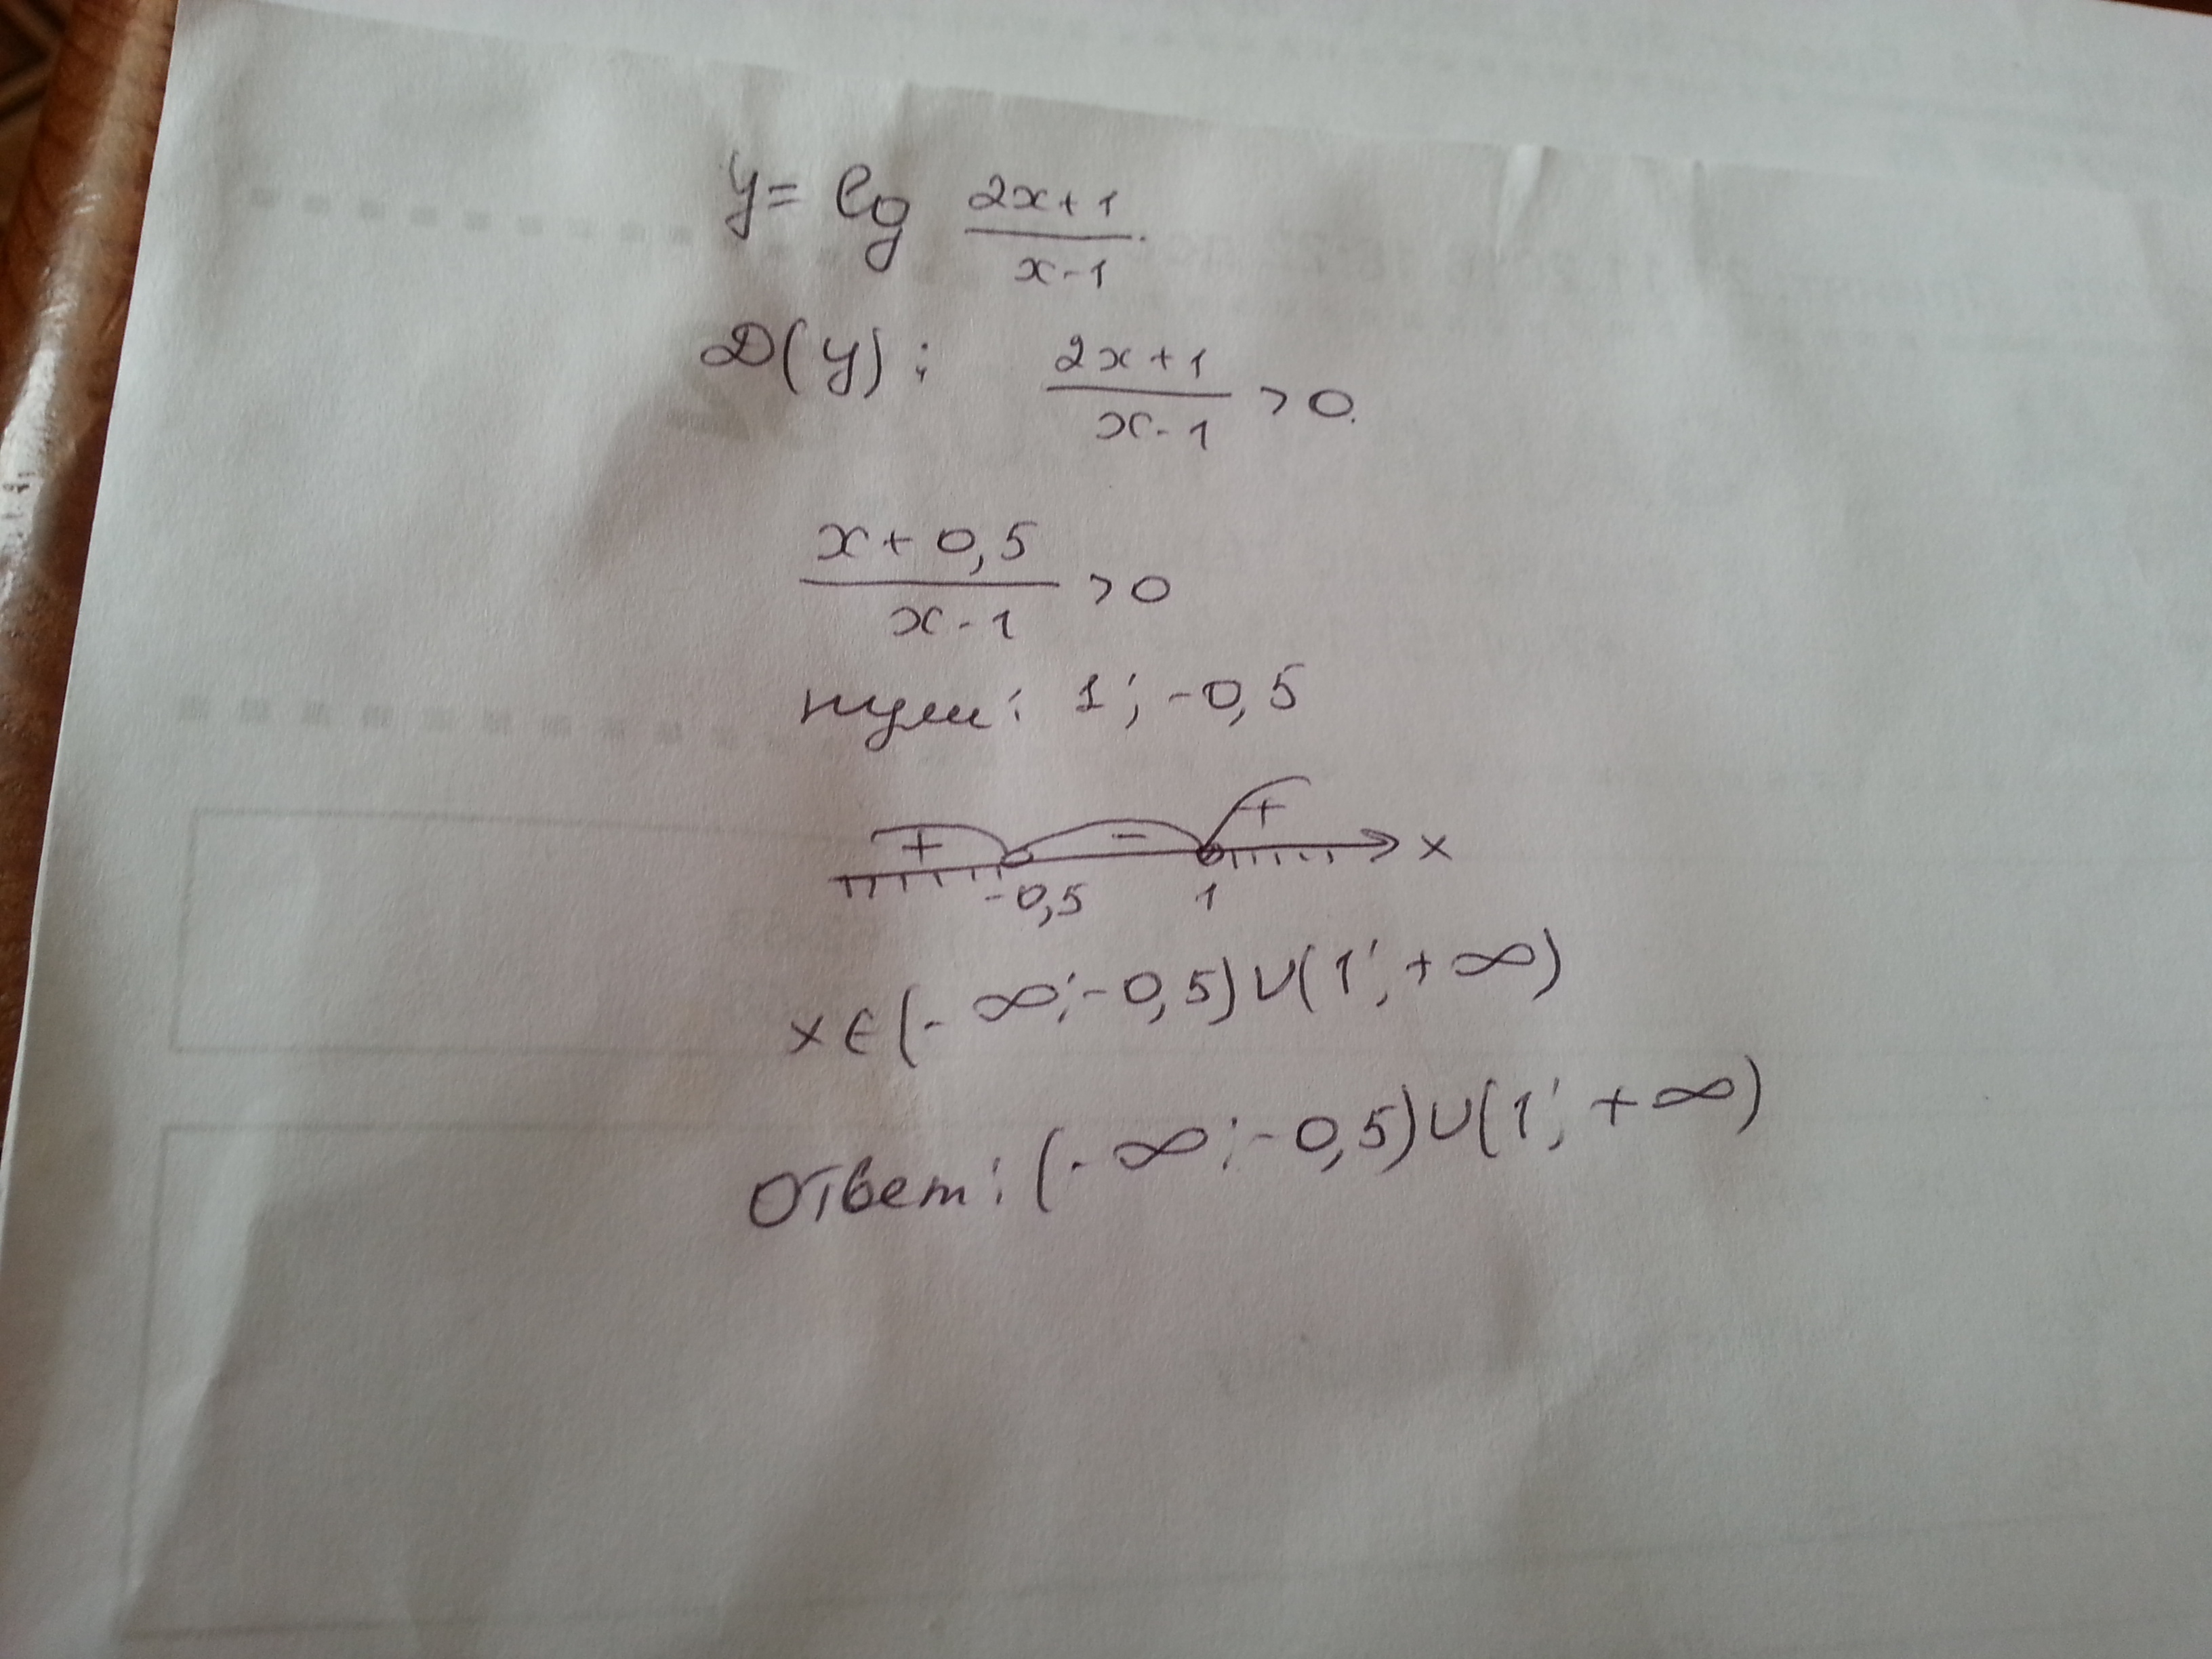 y = lg (2x+1)/(x-1)
D(y): (2x+1)/(x-1) > 0.
(x+0,5)/(x-1) > 0
нули: 1; -0,5
+ - + x
-0,5 1
x ∈ (-∞; -0,5) ∪ (1; +∞)
Ответ: (-∞; -0,5) ∪ (1; +∞)